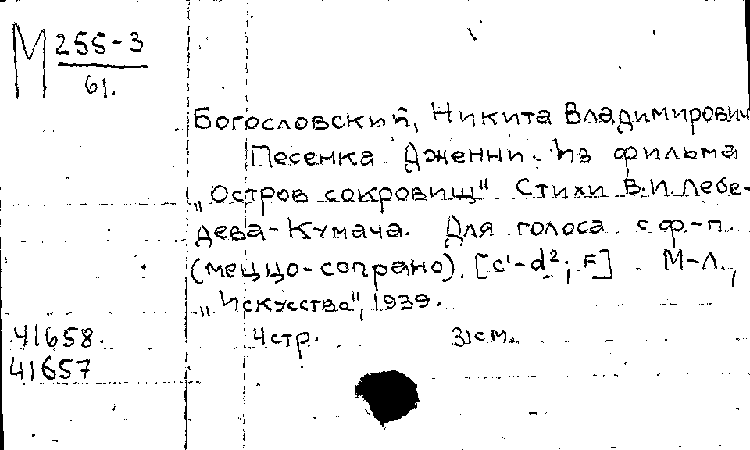 М 255-3
61.
Богословский, Никита Владимирович
Песенка Дженни. Из фильма
„Остров сокровищ" Стихи В.И. Лебе-
дева-Кумача. Для голоса с ф-п.
(меццо-сопрано). [c'-d²; F] М-Л.,
„Искусство", 1939.
41658. 4 стр. 31 см.
41657